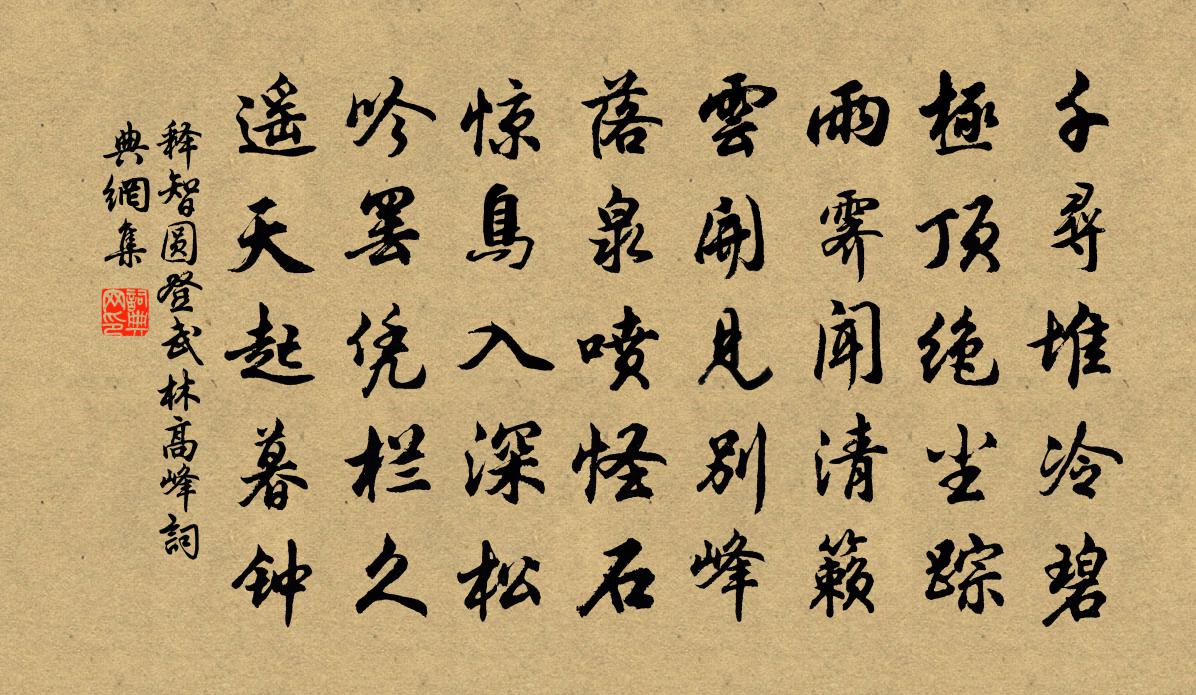 千尋堆冷碧
極顶绝尘踪
雨霽闻清籟
雲開見别峰
落泉喷怪石
惊鳥入深松
吟罢凭栏久
遥天起暮钟
释智圆登武林高峰詞
典網集
詞典網印